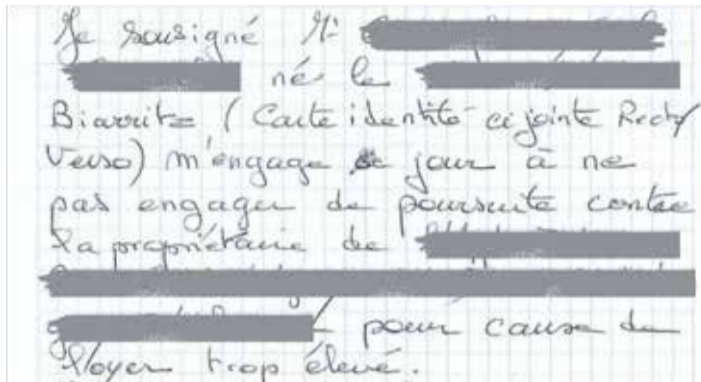 Je sousigné Mr
né le
Biarritz (Carte identité ci jointe Recto/
Verso) m'engage ce jour à ne
pas engager de poursuite contre
la propriétaire de
pour cause de
loyer trop élevé.